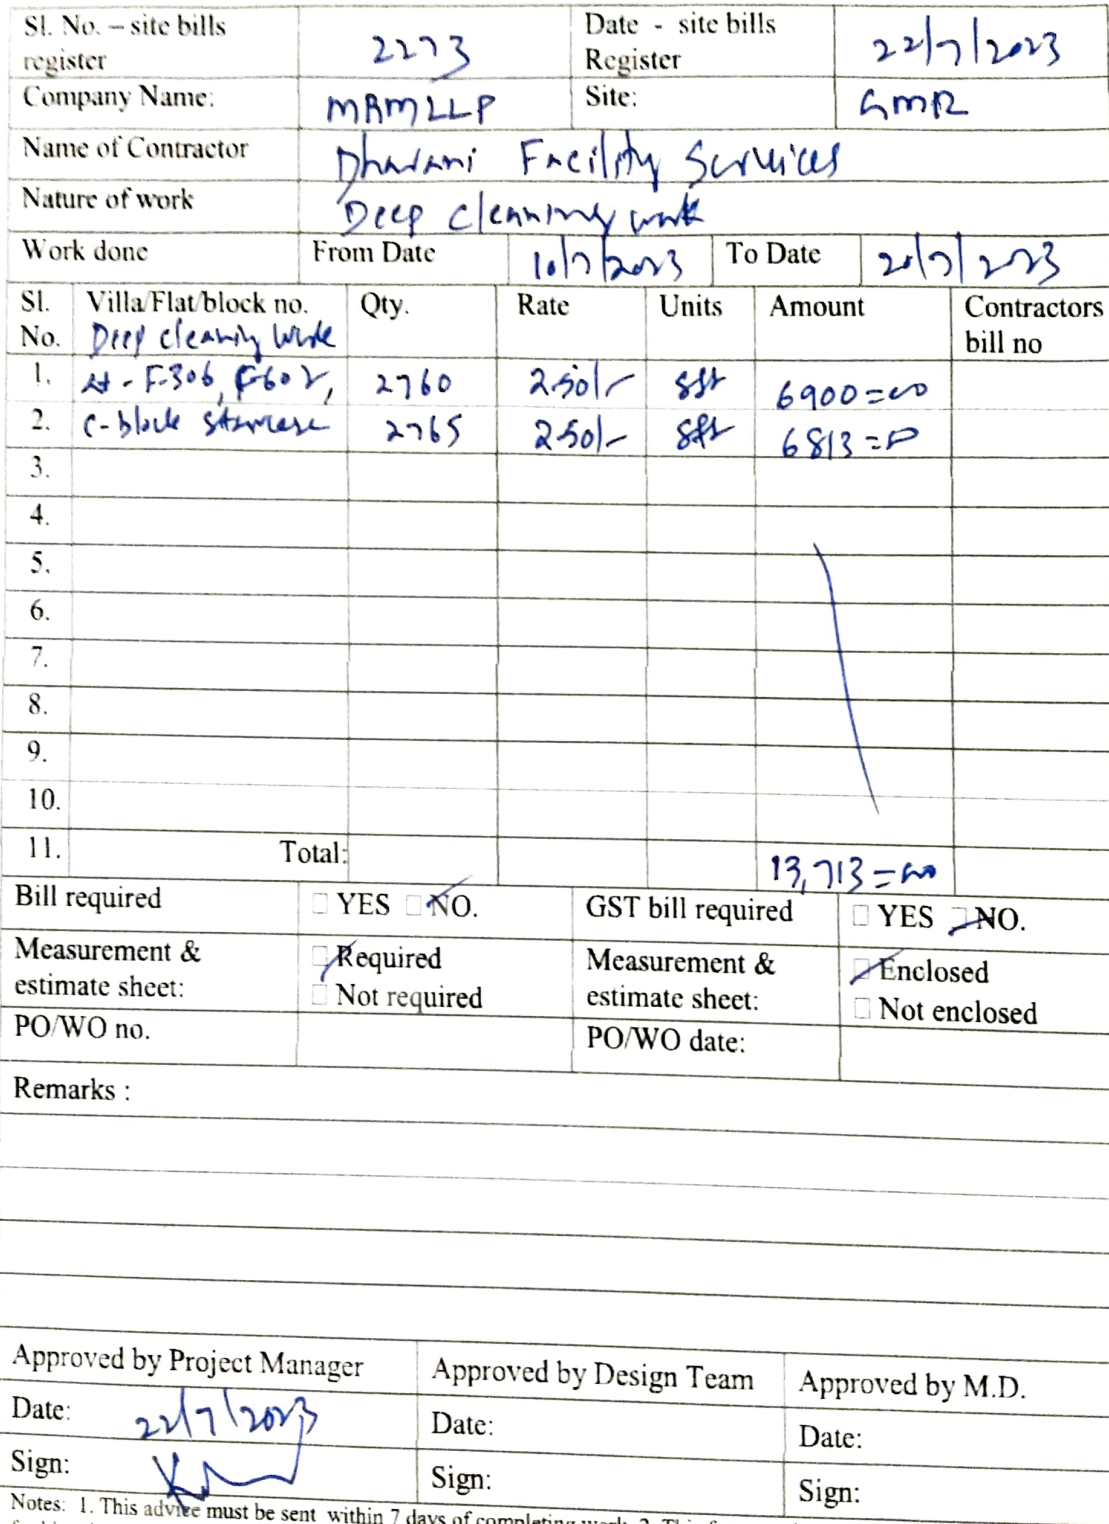 Sl. No. – site bills register 2273 Date - site bills Register 22/7/2023
Company Name: MRMLLP Site: GMR
Name of Contractor Dharani Facility Services
Nature of work Deep cleaning work
Work done From Date 10/7/2023 To Date 20/7/2023
Sl. No. Villa/Flat/block no. Qty. Rate Units Amount Contractors bill no
Deep cleaning work
1. At - F-306, F-602, 2760 2.50/- sft 6900=00
2. C-block staircase 2765 2.50/- sft 6813=00
3.
4.
5.
6.
7.
8.
9.
10.
11. Total: 13,713=00
Bill required □ YES □ NO. GST bill required □ YES □ NO.
Measurement & estimate sheet: □ Required □ Not required Measurement & estimate sheet: □ Enclosed □ Not enclosed
PO/WO no. PO/WO date:
Remarks :
Approved by Project Manager Approved by Design Team Approved by M.D.
Date: 22/7/2023 Date: Date:
Sign: Sign: Sign:
Notes: 1. This advice must be sent within 7 days of completing work. 2. This